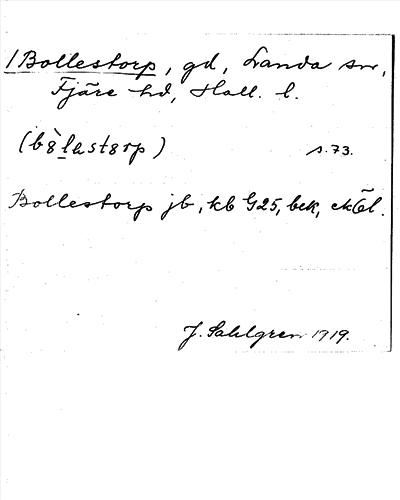 /Bollestorp, gd, Landa sn,
Fjäre hd, Hall. l.
(bȯ̀lastorp) s. 73.
Bollestorp jb, kb G25, bek,
J. Sahlgren 1919.